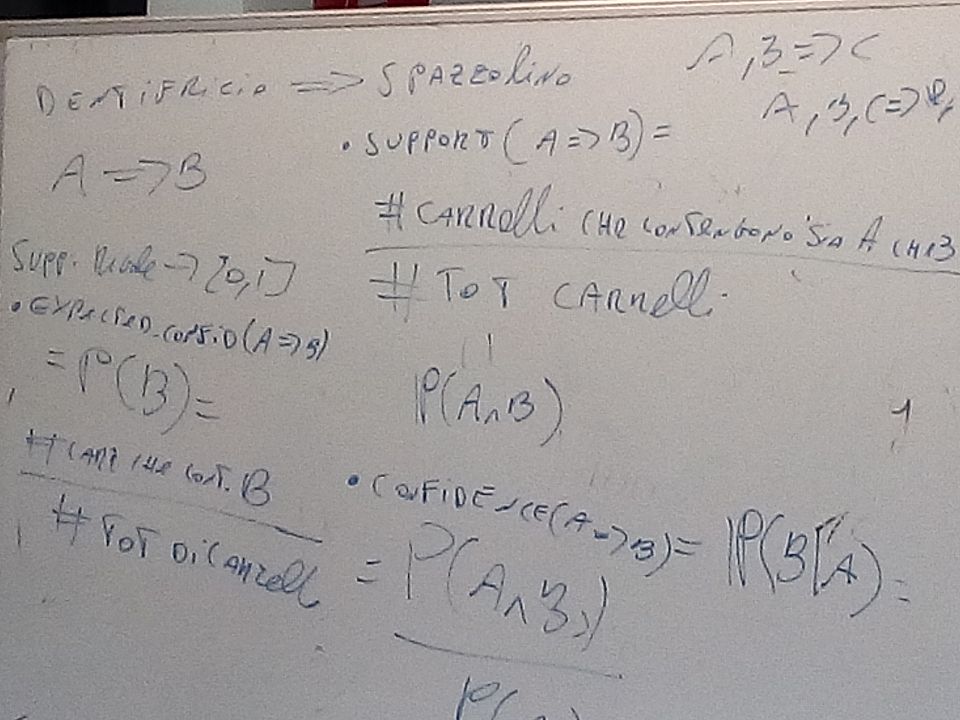 DENTIFRICIO => SPAZZOLINO
A => B
A, B => C
A, B, C =>
• SUPPORT (A => B) =
# CARRELLI CHE CONTENGONO SIA A CHE B
# TOT CARRELLI
P(A∧B)
SUPP. → [0,1]
• EXPECTED CONFID (A => B)
= P(B) =
# CARR CHE CONT. B
# TOT DI CARRELLI
• CONFIDENCE (A => B) = P(B|A) =
= P(A∧B)
P(
1